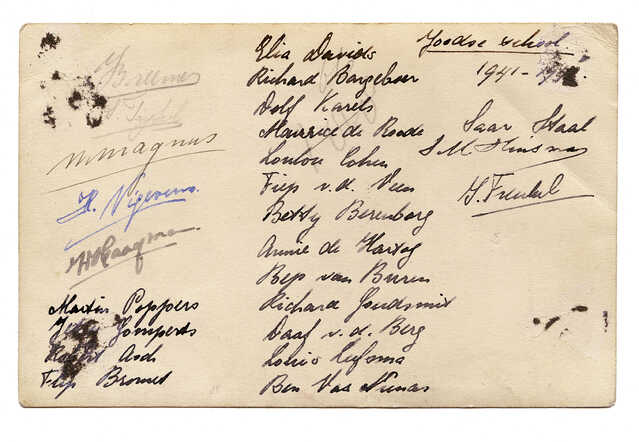 Bremer
M Magnus
H. Nigevens.
Martin Poppers
Jetty Gomperts
Robert Asch
Flip Bromet
Elia Davids
Richard Bargeboer
Dolf Karels
Maurice de Roode
Loulou Cohen
Fiep v.d. Veen
Betty Berenborg
Annie de Hartog
Bep van Buren
Richard Goudsmit
Daaf v.d. Berg
Ben Vas Nunes
Joodse School
1941-
Saar Staal
S.M.
Frenkel